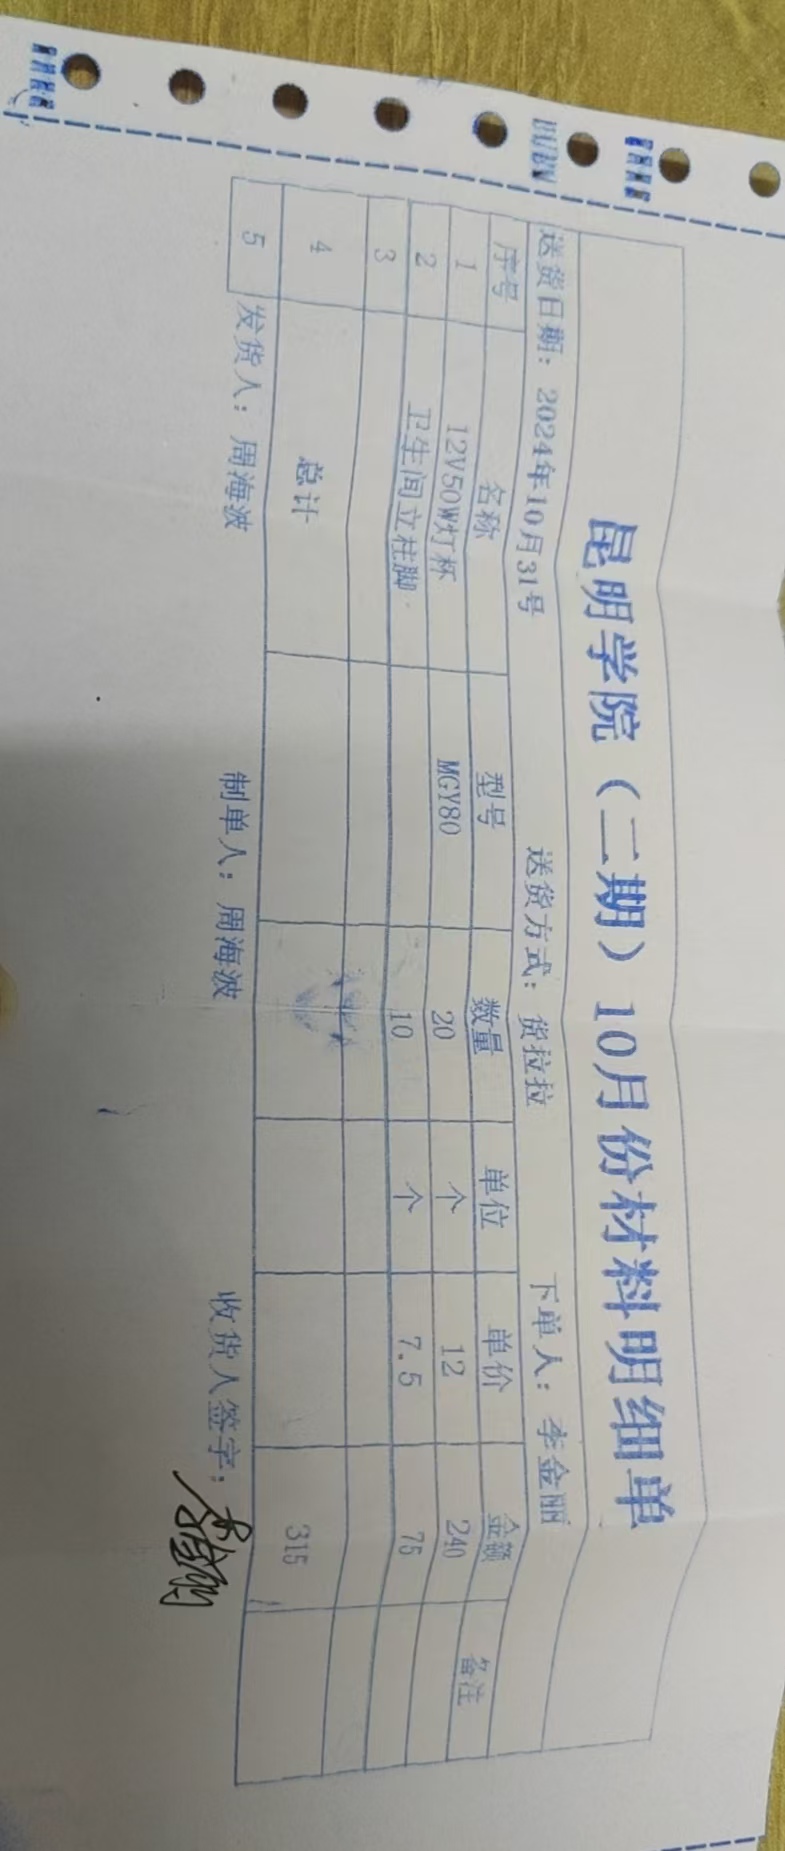 昆明学院（二期）10月份材料明细单
送货日期：2024年10月31号 送货方式：货拉拉 下单人：李金丽
序号 名称 型号 数量 单位 单价 金额 备注
1 12V50W灯杯 MGY80 20 个 12 240
2 卫生间立柱脚 10 个 7.5 75
3
4 总计 315
5 发货人：周海波 制单人：周海波 收货人签字：